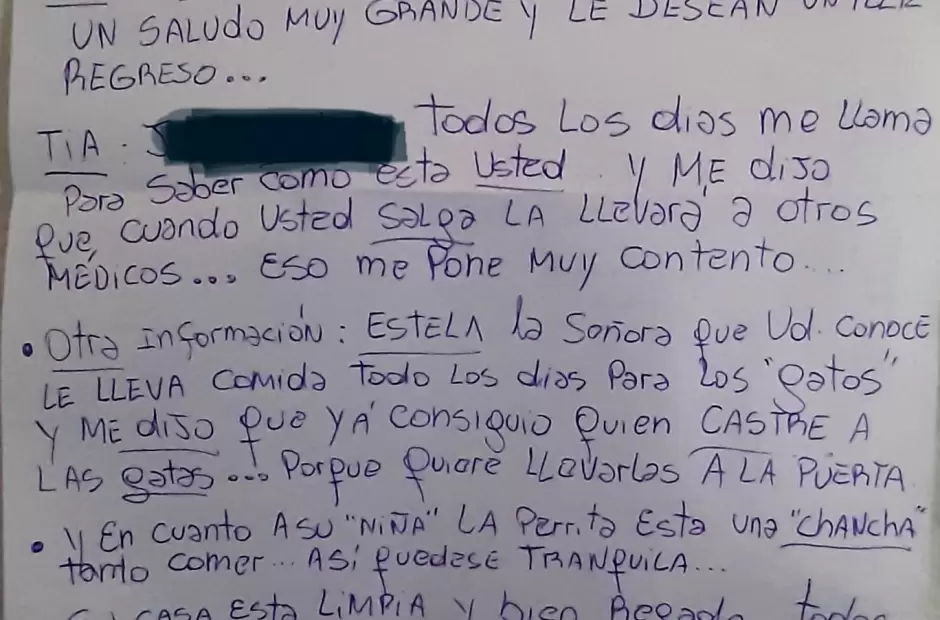 UN SALUDO MUY GRANDE Y LE DESEAN UN
REGRESO...
TIA : todos Los dias me llama
Para Saber como esta Usted. Y ME diJo
que, cuando Usted Salga LA LLevará a otros
MÉDICOS... ESO me Pone MUY Contento....
• Otra InFormación : ESTELA la Señora que Ud. Conoce
LE LLEVA Comida Todo Los dias Para Los "gatos"
Y ME diJo que YA Consiguio Quien CASTRE A
LAS gatas... Porque Quiere LLevarlas A LA PUERTA
• Y En cuanto A SU "NiÑA" LA Perrita Esta una "ChANChA"
tanto comer... ASí quedese TRANQUiLA...
CASA ESta LiMPIA Y bien Regada todos